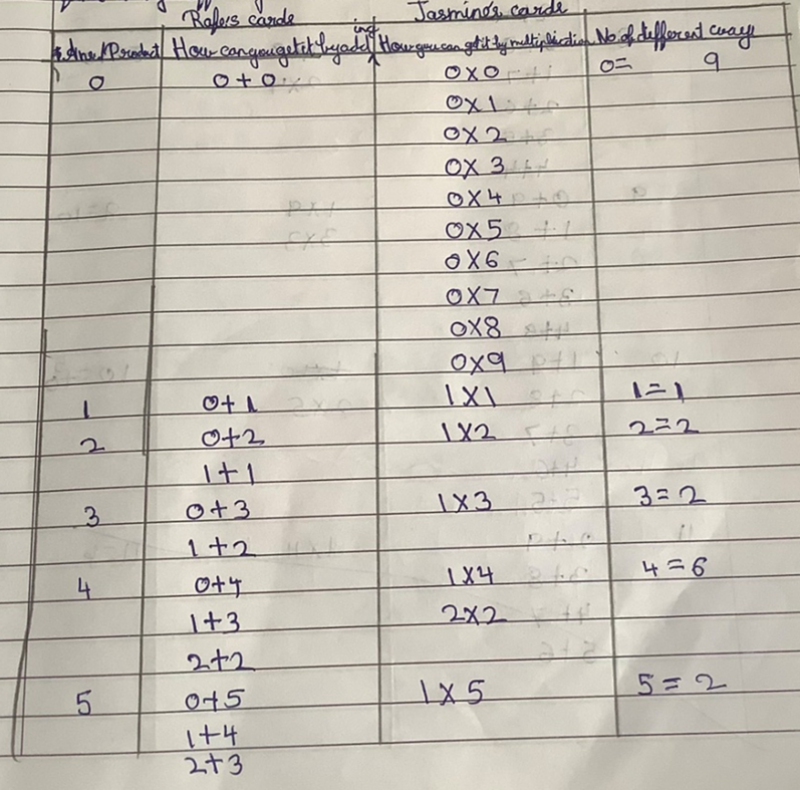 Rafer's cards Jasmine's cards
Ans/Product How can you get it by adding How you can get it by multiplication No. of different ways
0 0+0 0x0 0= 9
0x1
0x2
0x3
0x4
0x5
0x6
0x7
0x8
0x9
1 0+1 1x1 1=1
2 0+2 1x2 2=2
1+1
3 0+3 1x3 3=2
1+2
4 0+4 1x4 4=6
1+3 2x2
2+2
5 0+5 1x5 5=2
1+4
2+3